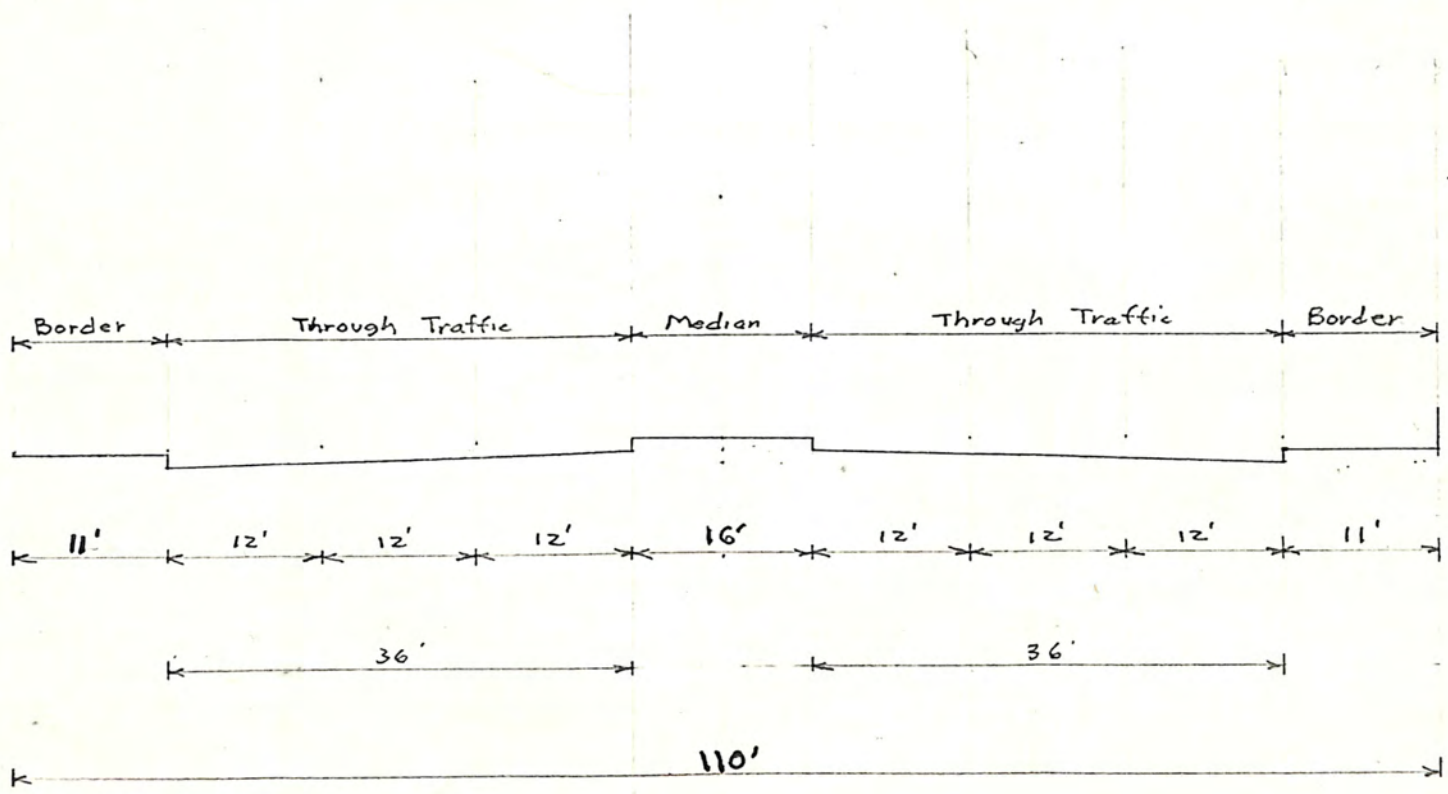 Border Through Traffic Median Through Traffic Border
11' 12' 12' 12' 16' 12' 12' 12' 11'
36' 36'
110'